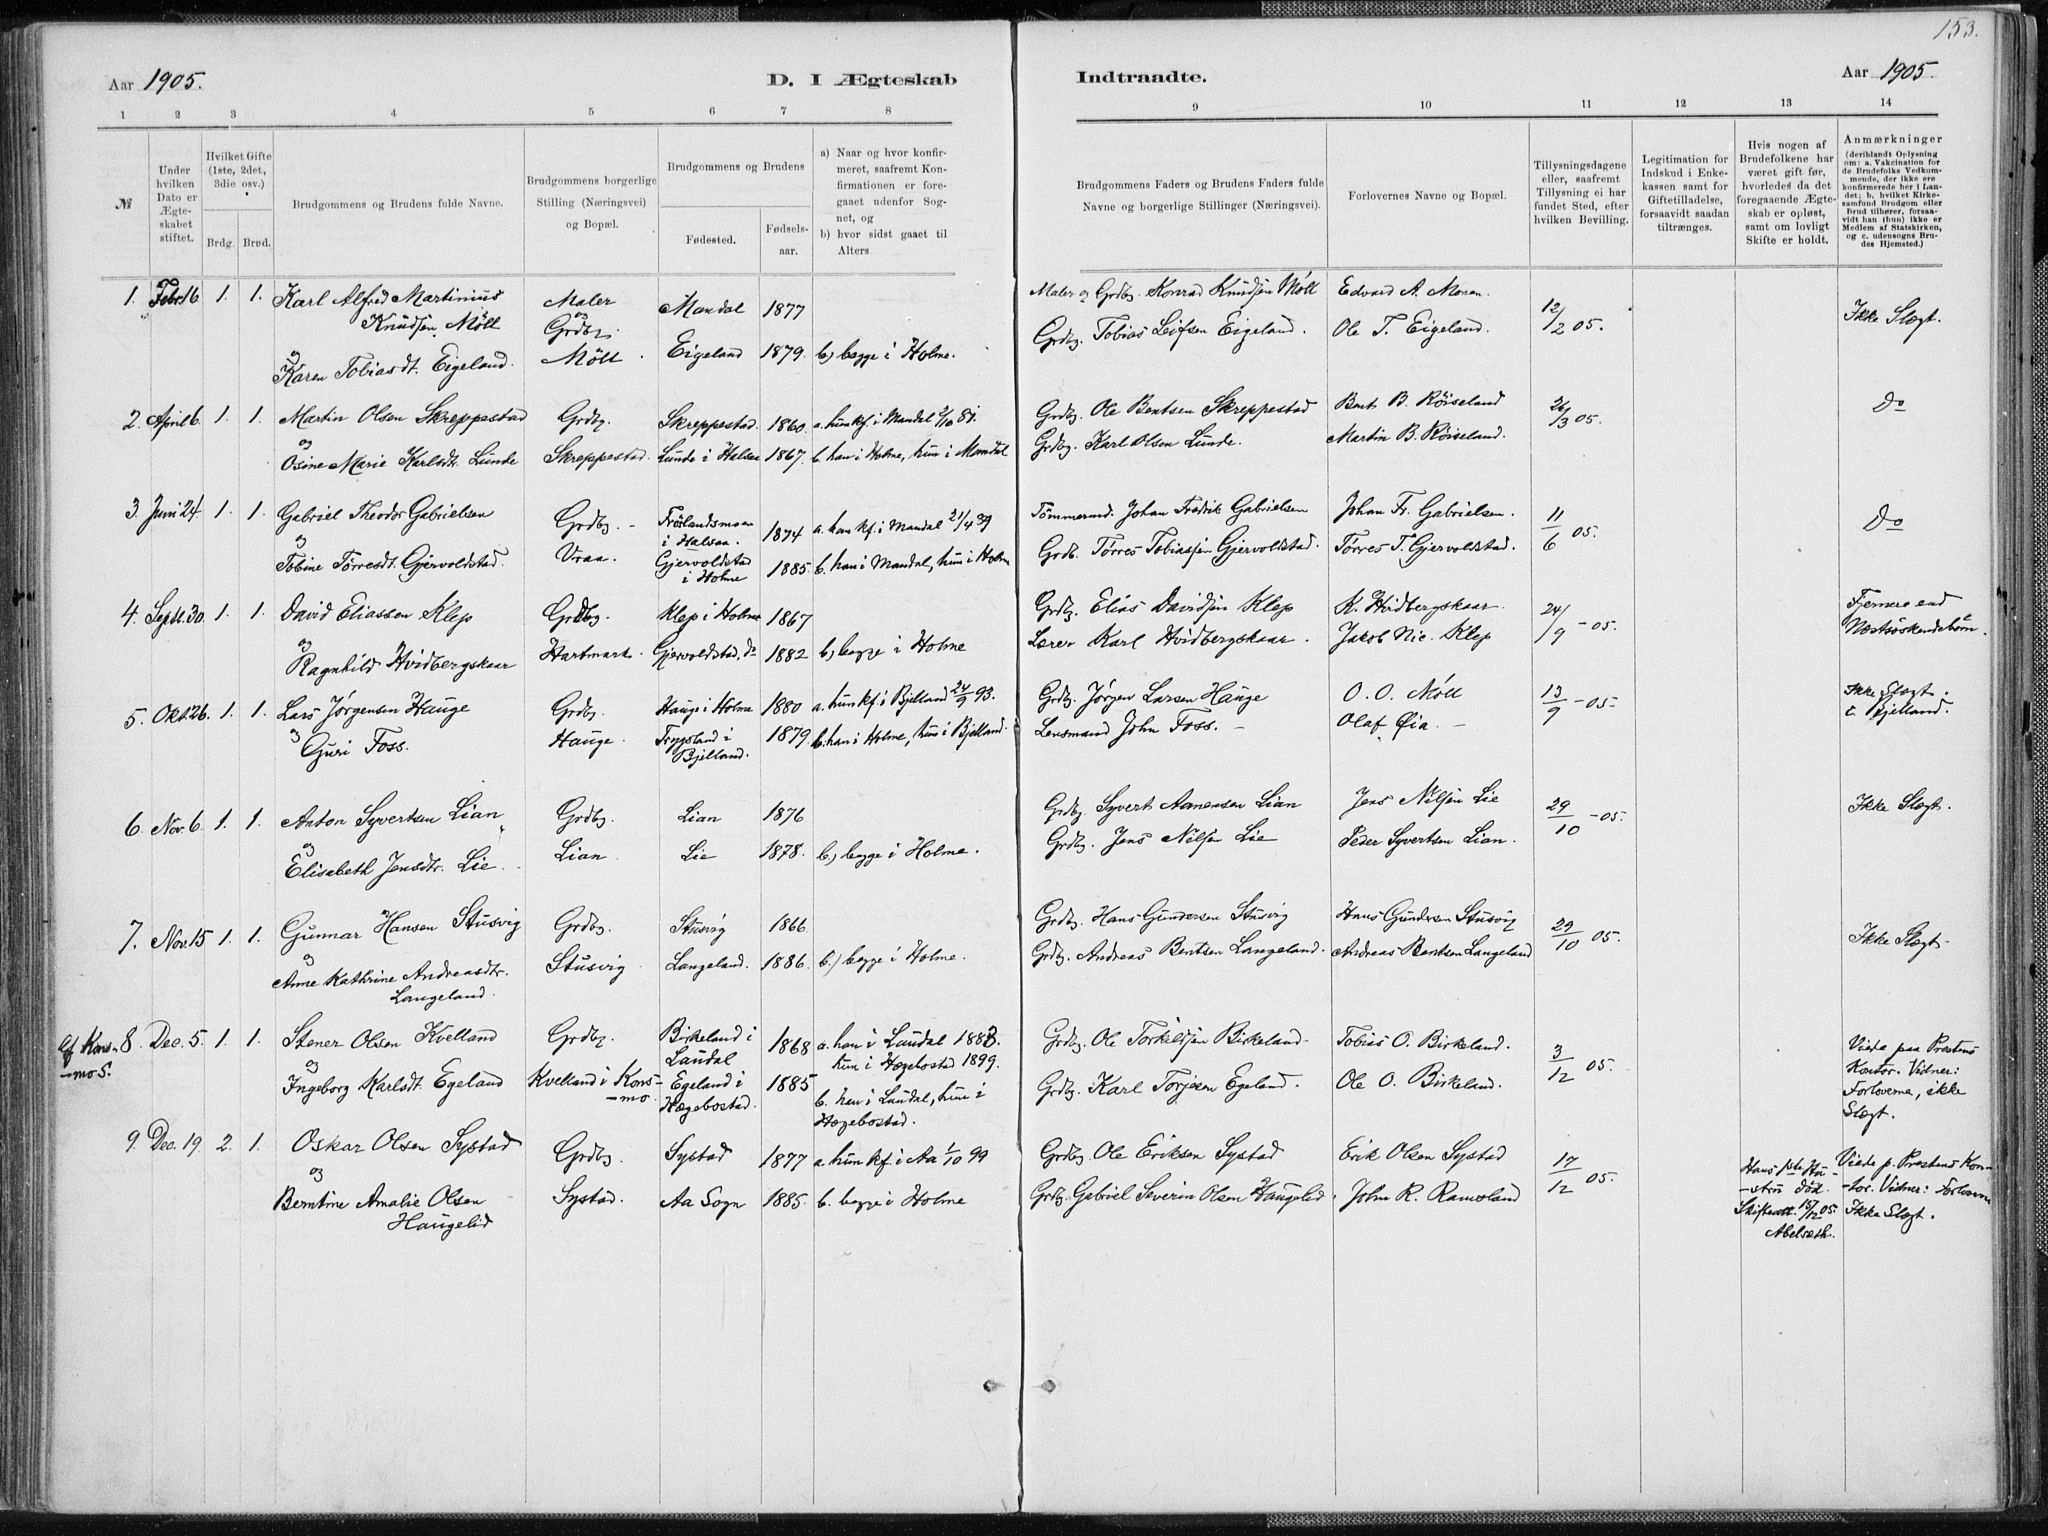 153.
Aar 1905.
D. I Ægteskab
Indtraadte.
Aar 1905.
1 2 3 4 5 6 7 8 9 10 11 12 13 14
№
Under hvilken Dato er Ægteskabet stiftet.
Hvilket Gifte (1ste, 2det, 3die osv.)
Brdg. Brud.
Brudgommens og Brudens fulde Navne.
Brudgommens borgerlige Stilling (Næringsvei) og Bopæl.
Brudgommens og Brudens
Fødested.
Fødselsaar.
a) Naar og hvor konfirmeret, saafremt Konfirmationen er foregaaet udenfor Sognet, og
b) hvor sidst gaaet til Alters
Brudgommens Faders og Brudens Faders fulde Navne og borgerlige Stillinger (Næringsvei).
Forlovernes Navne og Bopæl.
Tillysningsdagene eller, saafremt Tillysning ei har fundet Sted, efter hvilken Bevilling.
Legitimation for Indskud i Enkekassen samt for Giftetilladelse, forsaavidt saadan tiltrænges.
Hvis nogen af Brudefolkene har været gift før, hvorledes da det foregaaende Ægteskab er opløst, samt om lovligt Skifte er holdt.
Anmærkninger
(deriblandt Oplysning om: a. Vakcination for de Brudefolks Vedkommende, der ikke ere konfirmerede her i Landet; b. hvilket Kirkesamfund Brudgom eller Brud tilhører, forsaavidt han (hun) ikke er Medlem af Statskirken, og c. udensogns Brudes Hjemsted.)
1. Febr. 16 1. 1. Karl Alfred Martinius Maler Mandal 1877 Maler og Grdbg. Konrad Knudsen Möll Edvard A. Monen. 12/2 05. Ikke Slægt.
Knudsen Möll og Grdbg.
og Karen Tobiasdt. Eigeland. Möll. Eigeland 1879. b) begge i Holme. Grdbg. Tobias Leifsen Eigeland. Ole T. Eigeland.
2. April 6. 1. 1. Martin Olsen Skreppestad Grdbg. Skreppestad. 1860. a. hun kf. i Mandal 2/10 81. Grdbg. Ole Bentsen Skreppestad Bent B. Röiseland 26/3 05. Do
og Osine Marie Karlsdt. Lunde Skreppestad. Lunde i Halsaa 1867. b. han i Holme, hun i Mandal Grdbg. Karl Olsen Lunde. Martin B. Röiseland.
3. Juni 24. 1. 1. Gabriel Theodor Gabrielsen Grdbg. - Frölandsmoen i Halsaa. 1874 a. han kf. i Mandal 21/4 89 Tömmermd. Johan Fredrik Gabrielsen Johan Fr. Gabrielsen. 11/6 05. Do
og Tobine Törresdt. Gjervoldstad. Vraa. Gjervoldstad i Holme 1885. b. han i Mandal, hun i Holme Grdb. Törres Tobiassen Gjervoldstad. Törres T. Gjervoldstad.
4. Septbr. 30. 1. 1. David Eliassen Klep Grdbg. Klep i Holme 1867 Grdbg. Elias Davidsen Klep K. Hvidbergskaar. 24/9 - 05. Fjernere end Næstsöskendebörn.
og Ragnhild Hvidbergskaar Hartmark. Gjervoldstad, do 1882 b) begge i Holme Lærer Karl Hvidbergskaar. Jakob Nic. Klep
5. Okt. 26. 1. 1. Lars Jörgensen Hauge Grdbg. Hauge i Holme 1880 a. hun kf. i Bjelland 24/9 93. Grdbg. Jörgen Larsen Hauge O. O. Möll 13/9 - 05. Ikke Slægt. c. Bjelland.
og Guri Foss. Hauge. Trygsland i Bjelland. 1879. b. han i Holme, hun i Bjelland. Lensmand John Foss. - Olaf Øia. -
6. Nov. 6. 1. 1. Anton Syvertsen Lian Grdbg. Lian 1876 Grdbg. Syvert Aanensen Lian Jens Nilsen Lie 29/10 - 05. Ikke Slægt.
og Elisabeth Jensdtr. Lie. Lian. Lie 1878. b) begge i Holme. Grdbg. Jens Nilsen Lie Peder Syvertsen Lian.
7. Nov. 15 1. 1. Gunnar Hansen Stusvig Grdbg. Stusvig 1866 Grdbg. Hans Gundersen Stusvig Hans Gundersen Stusvig 29/10 05. Ikke Slægt.
og Anne Kathrine Andreasdtr. Langeland. Stusvig Langeland. 1886. b.) begge i Holme. Grdbg. Andreas Bentsen Langeland. Andreas Bentsen Langeland
cf Konsmo S. 8. Dec. 5. 1. 1. Stener Olsen Kvelland Grdbg. Birkeland i Laudal 1868 a. han i Laudal 1883. hun i Hægebostad 1899. Grdbg. Ole Torkelsen Birkeland Tobias O. Birkeland. 3/12 05. Viede paa Prestens Kontor. Vidner: Forloverne, ikke Slægt.
og Ingeborg Karlsdt. Egeland Kvelland i Konsmo. Egeland i Hægebostad. 1885 b. han i Laudal, hun i Hægebostad. Grdbg. Karl Torjesen Egeland. Ole O. Birkeland.
9. Dec. 19. 2. 1. Oskar Olsen Systad Grdbg. Systad 1877 a. hun kf. i Aa 1/10 99 Grdbg. Ole Eriksen Systad Erik Olsen Systad 17/12 05. Hans 1ste Hustru död. Skifteatt. 15/12 05. Abelseth. Viede p. Prestens Kontor. Vidner: Forloverne Ikke Slægt.
og Berntine Amalie Olsen Haugelid Systad. Aa Sogn 1885. b. begge i Holme Grdbg. Gabriel Severin Olsen Haugelid. John R. Ramsland